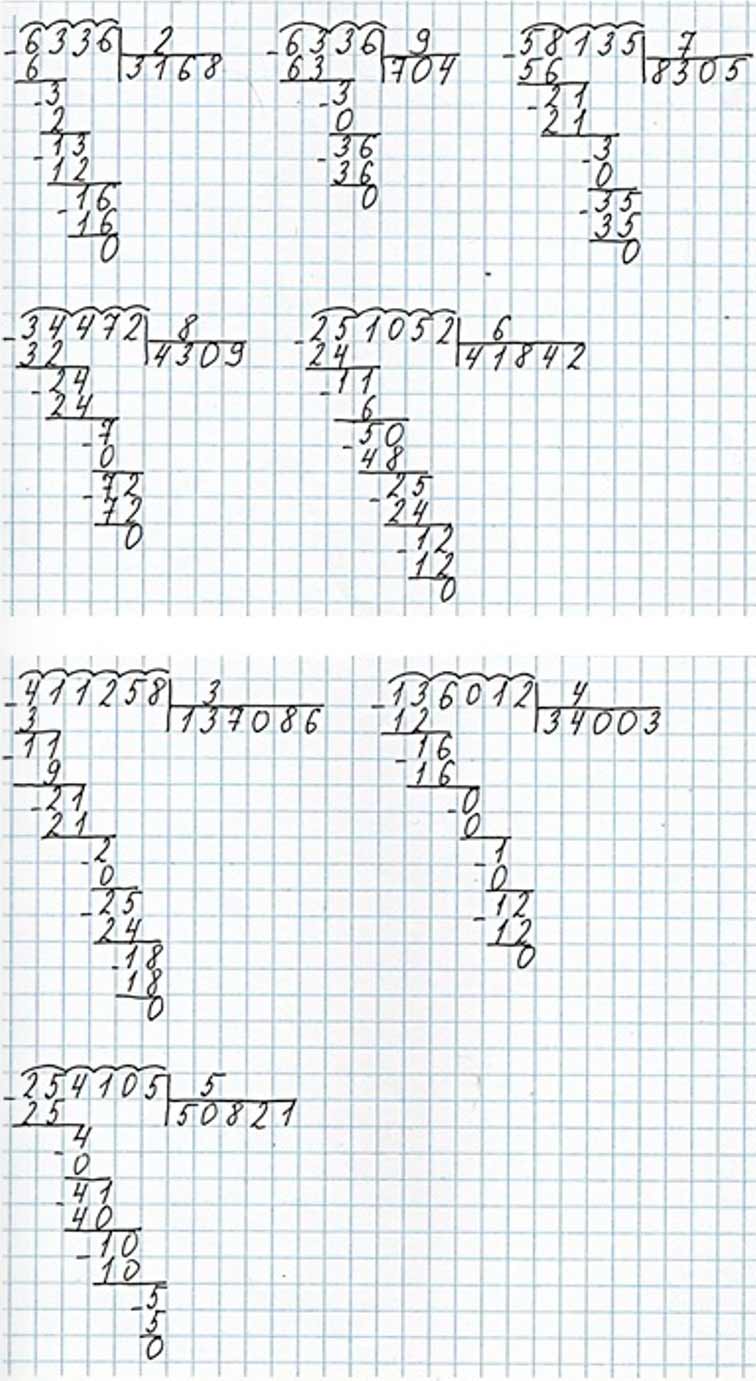 -6336 2 -6336 9 -58135 7
6 3168 63 704 56 8305
-3 -3 -21
2 0 21
-13 -36 -3
12 36 0
-16 0 -35
16 35
0 0
-34472 8 -251052 6
32 4309 24 41842
-24 -11
24 6
-7 -50
0 48
-72 -25
72 24
0 -12
12
0
-411258 3 -136012 4
3 137086 12 34003
-11 -16
9 16
-21 -0
21 0
-2 -1
0 0
-25 -12
24 12
-18 0
18
0
-254105 5
25 50821
-4
0
-41
40
-10
10
-5
5
0